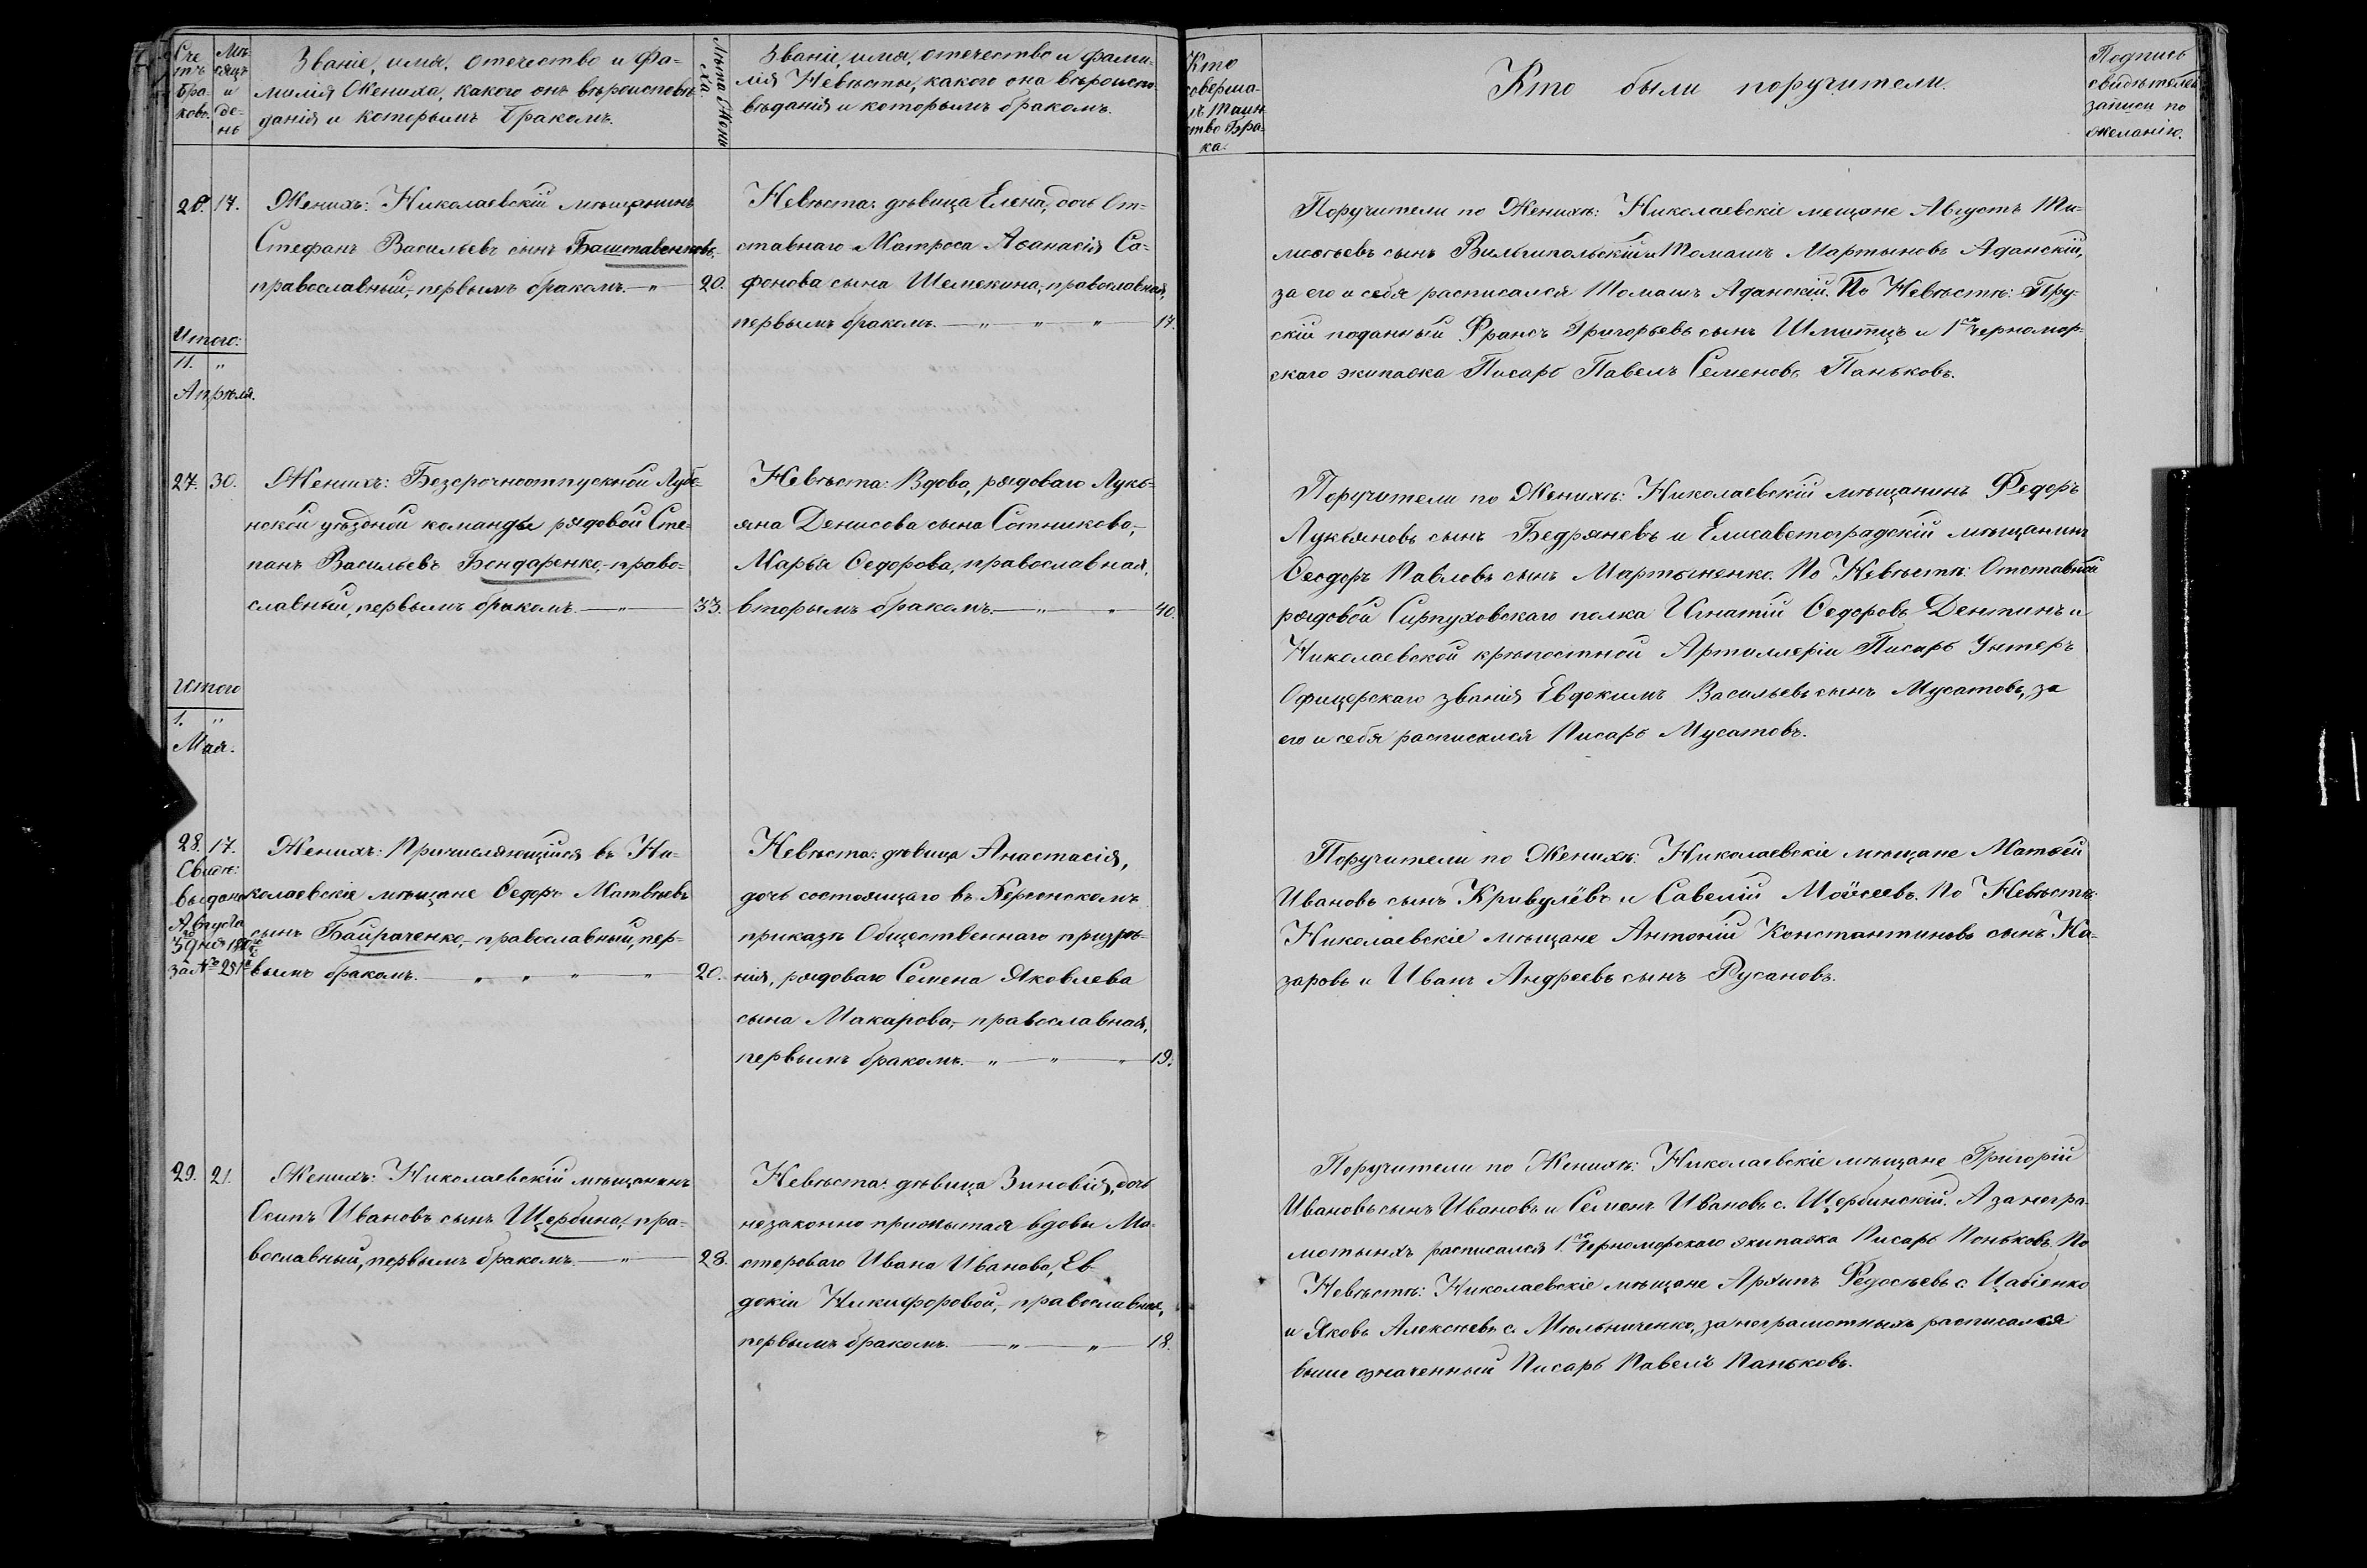 Сче
тъ
бра-
ковъ.
Мѣ-
сяцъ
и
де-
нь
Званіе, имя, отечество и фа-
милія Жениха, какого онъ вѣроисповѣ-
данія и которымъ бракомъ.
Лѣта Жени
ха.
Званіе, имя, отечество и фами-
лія Невѣсты, какого она вѣроиспо-
вѣданія и которымъ бракомъ.
Кто
соверша-
лъ Таин-
ство Бра-
ка.
Кто были поручители.
Подпись
свидѣтелей
записи по
желанію.
26. 17.
Женихъ: Николаевскій мѣщанинъ
Стефанъ Васильевъ сынъ Баштавенковъ,
православный, первымъ бракомъ. — „ — 20.
Невѣста: дѣвица Елена, дочь От-
ставнаго Матроса Аѳанасія Са-
фонова сына Шемекина, православная,
первымъ бракомъ. — „ „ „ — 17.
Поручители по Женихѣ: Николаевскіе мещане Августъ Ти-
моѳьевъ сынъ Вильчипольскій и Томашъ Мартыновъ Аданскій,
за его и себя расписался Томашъ Аданскій. По Невѣстѣ: Пру-
скій поданный Франсъ Григорьевъ сынъ Шмитцъ и 1го Черномор-
скаго экипажа Писарь Павелъ Семеновъ Паньковъ.
Итого:
11. „
Апрѣля.
27. 30.
Женихъ: Безсрочноотпускной Лубе-
нской уѣздной команды рядовой Сте-
панъ Васильевъ Бондаренко, право-
славный, первымъ бракомъ. — „ — 33.
Невѣста: Вдова, рядоваго Лукь-
яна Денисова сына Сотникова,
Марья Ѳедорова, православная,
вторымъ бракомъ. — „ — „ — 40.
Поручители по Женихѣ: Николаевскій мѣщанинъ Федоръ
Лукьяновъ сынъ Бедряневъ и Елисаветоградскій мѣщанинъ
Ѳеодоръ Павловъ сынъ Мартыненко. По Невѣстѣ: Отставной
рядовой Сирпуховскаго полка Игнатій Ѳедоровъ Дентинъ и
Николаевской крѣпостной Артиллеріи Писарь Унтеръ
Офицерскаго званія Евдокимъ Васильевъ сынъ Мусатовъ, за
его и себя расписался Писарь Мусатовъ.
Итого
1. „
Мая.
28. 17.
Свидѣ:
выдано
Августа
за № 251
Женихъ: Причисляющійся въ Ни-
колаевскіе мѣщане Ѳедоръ Матвѣевъ
сынъ Байраченко, православный, пер-
вымъ бракомъ. — „ „ „ „ — 20.
Невѣста: дѣвица Анастасія,
дочь состоящаго въ Херсонскомъ
приказѣ Общественнаго призрѣ-
нія, рядоваго Семена Яковлева
сына Макарова, православная,
первымъ бракомъ. — „ — „ — „ — 19.
Поручители по Женихѣ: Николаевскіе мѣщане Матвей
Ивановъ сынъ Кривулёвъ и Савелій Моисеевъ. По Невѣстѣ:
Николаевскіе мѣщане Антоній Константиновъ сынъ На-
заровъ и Иванъ Андреевъ сынъ Русановъ.
29. 21.
Женихъ: Николаевскій мѣщанинъ
Есипъ Ивановъ сынъ Щербина, пра-
вославный, первымъ бракомъ. — „ — 28.
Невѣста: дѣвица Зиновія, дочь
незаконно прижитая вдовы Ма-
стероваго Ивана Иванова, Ев-
докіи Никифоровой, православная,
первымъ бракомъ. — „ — „ — 18.
Поручители по Женихѣ: Николаевскіе мѣщане Григорій
Ивановъ сынъ Ивановъ и Семенъ Ивановъ с. Щербинскій. А за негра-
мотныхъ расписался 1го Черноморскаго экипажа Писарь Паньковъ. По
Невѣстѣ: Николаевскіе мѣщане Архипъ Федосѣевъ с. Цабіенко
и Яковъ Алексѣевъ с. Мельниченко, за неграмотныхъ расписался
выше означенный Писарь Павелъ Паньковъ.